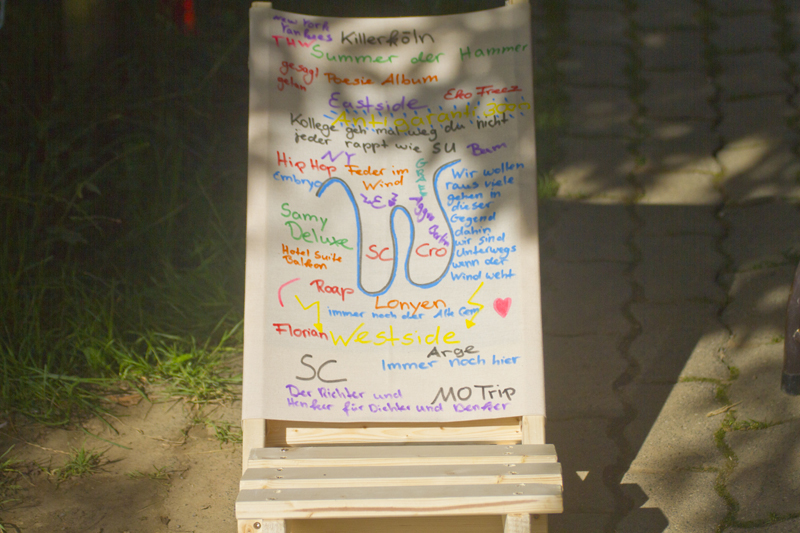 New York
Yankees
Killerköln
THW
Summer der Hammer
gesagt
getan
Poesie Album
Eko Freez
Eastside
Antigarant
Kollege geh mal weg du nicht
jeder rappt wie SU
Bam
NY
Hip Hop
Feder im
Wind
embryo
Samy
Deluxe
Hotel Suite
Balkon
SC
Cro
Aggro Berlin
Wir wollen
raus viele
gehen in
dieser
Gegend
dahin
wir sind
Unterwegs
wenn der
Wind weht
Roap
Lonyen
immer noch der Alte Cem
Florian
Westside
Arge
SC
Immer noch hier
Der Richter und
Henker für Dichter und Denker
MO Trip